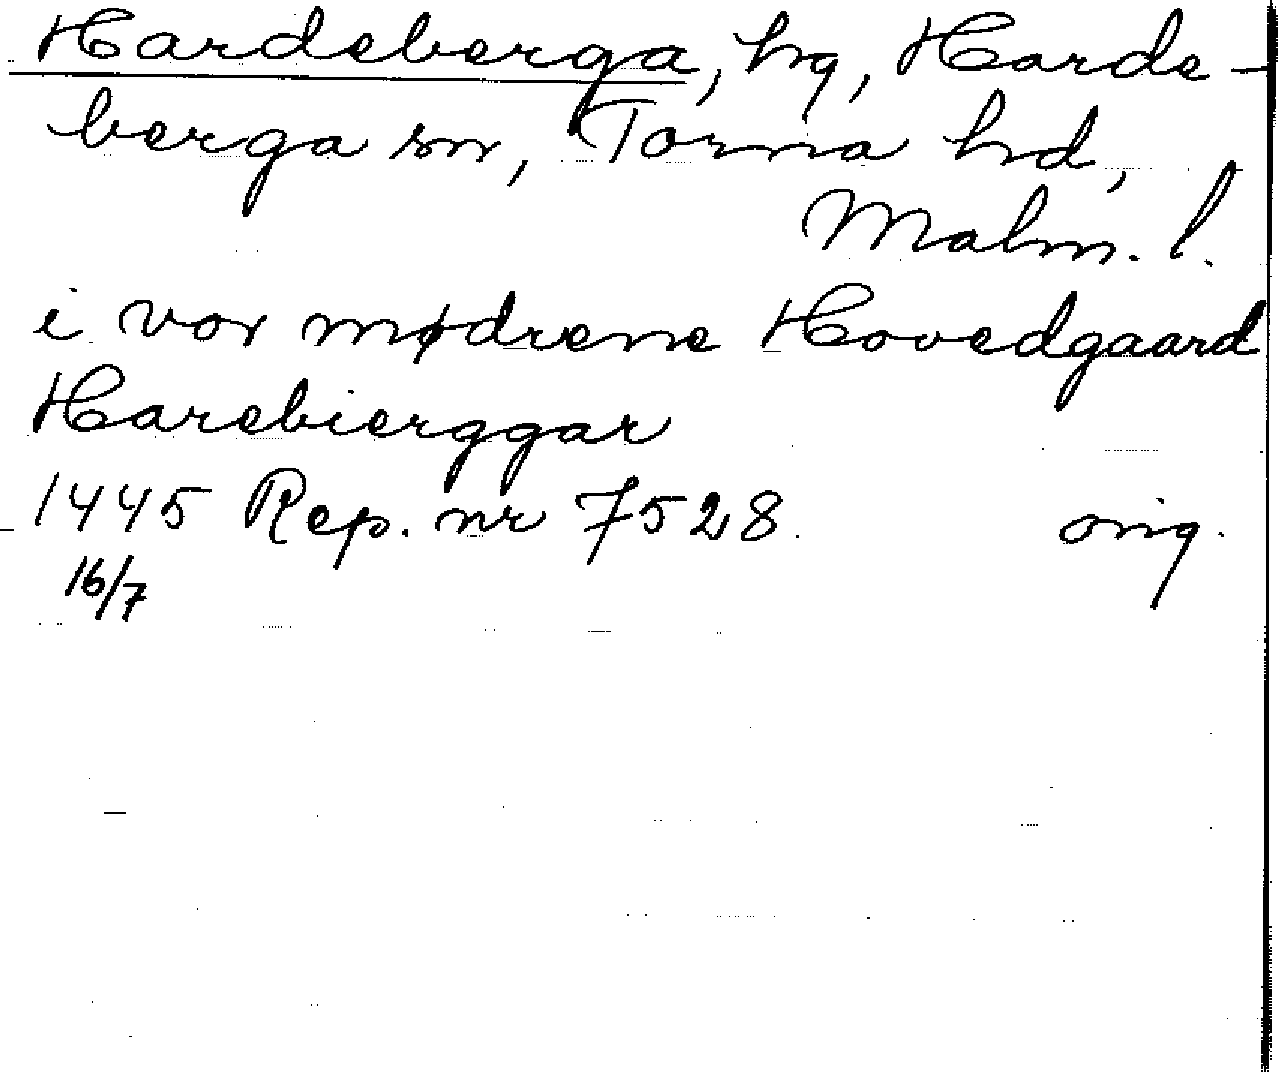 Hardeberga, hg, Harde-
berga sn, Torna hd,
Malm. l.
i vor mødrene Hovedgaard
Harebierggar
1445 Rep. nr 7528. orig.
16/7